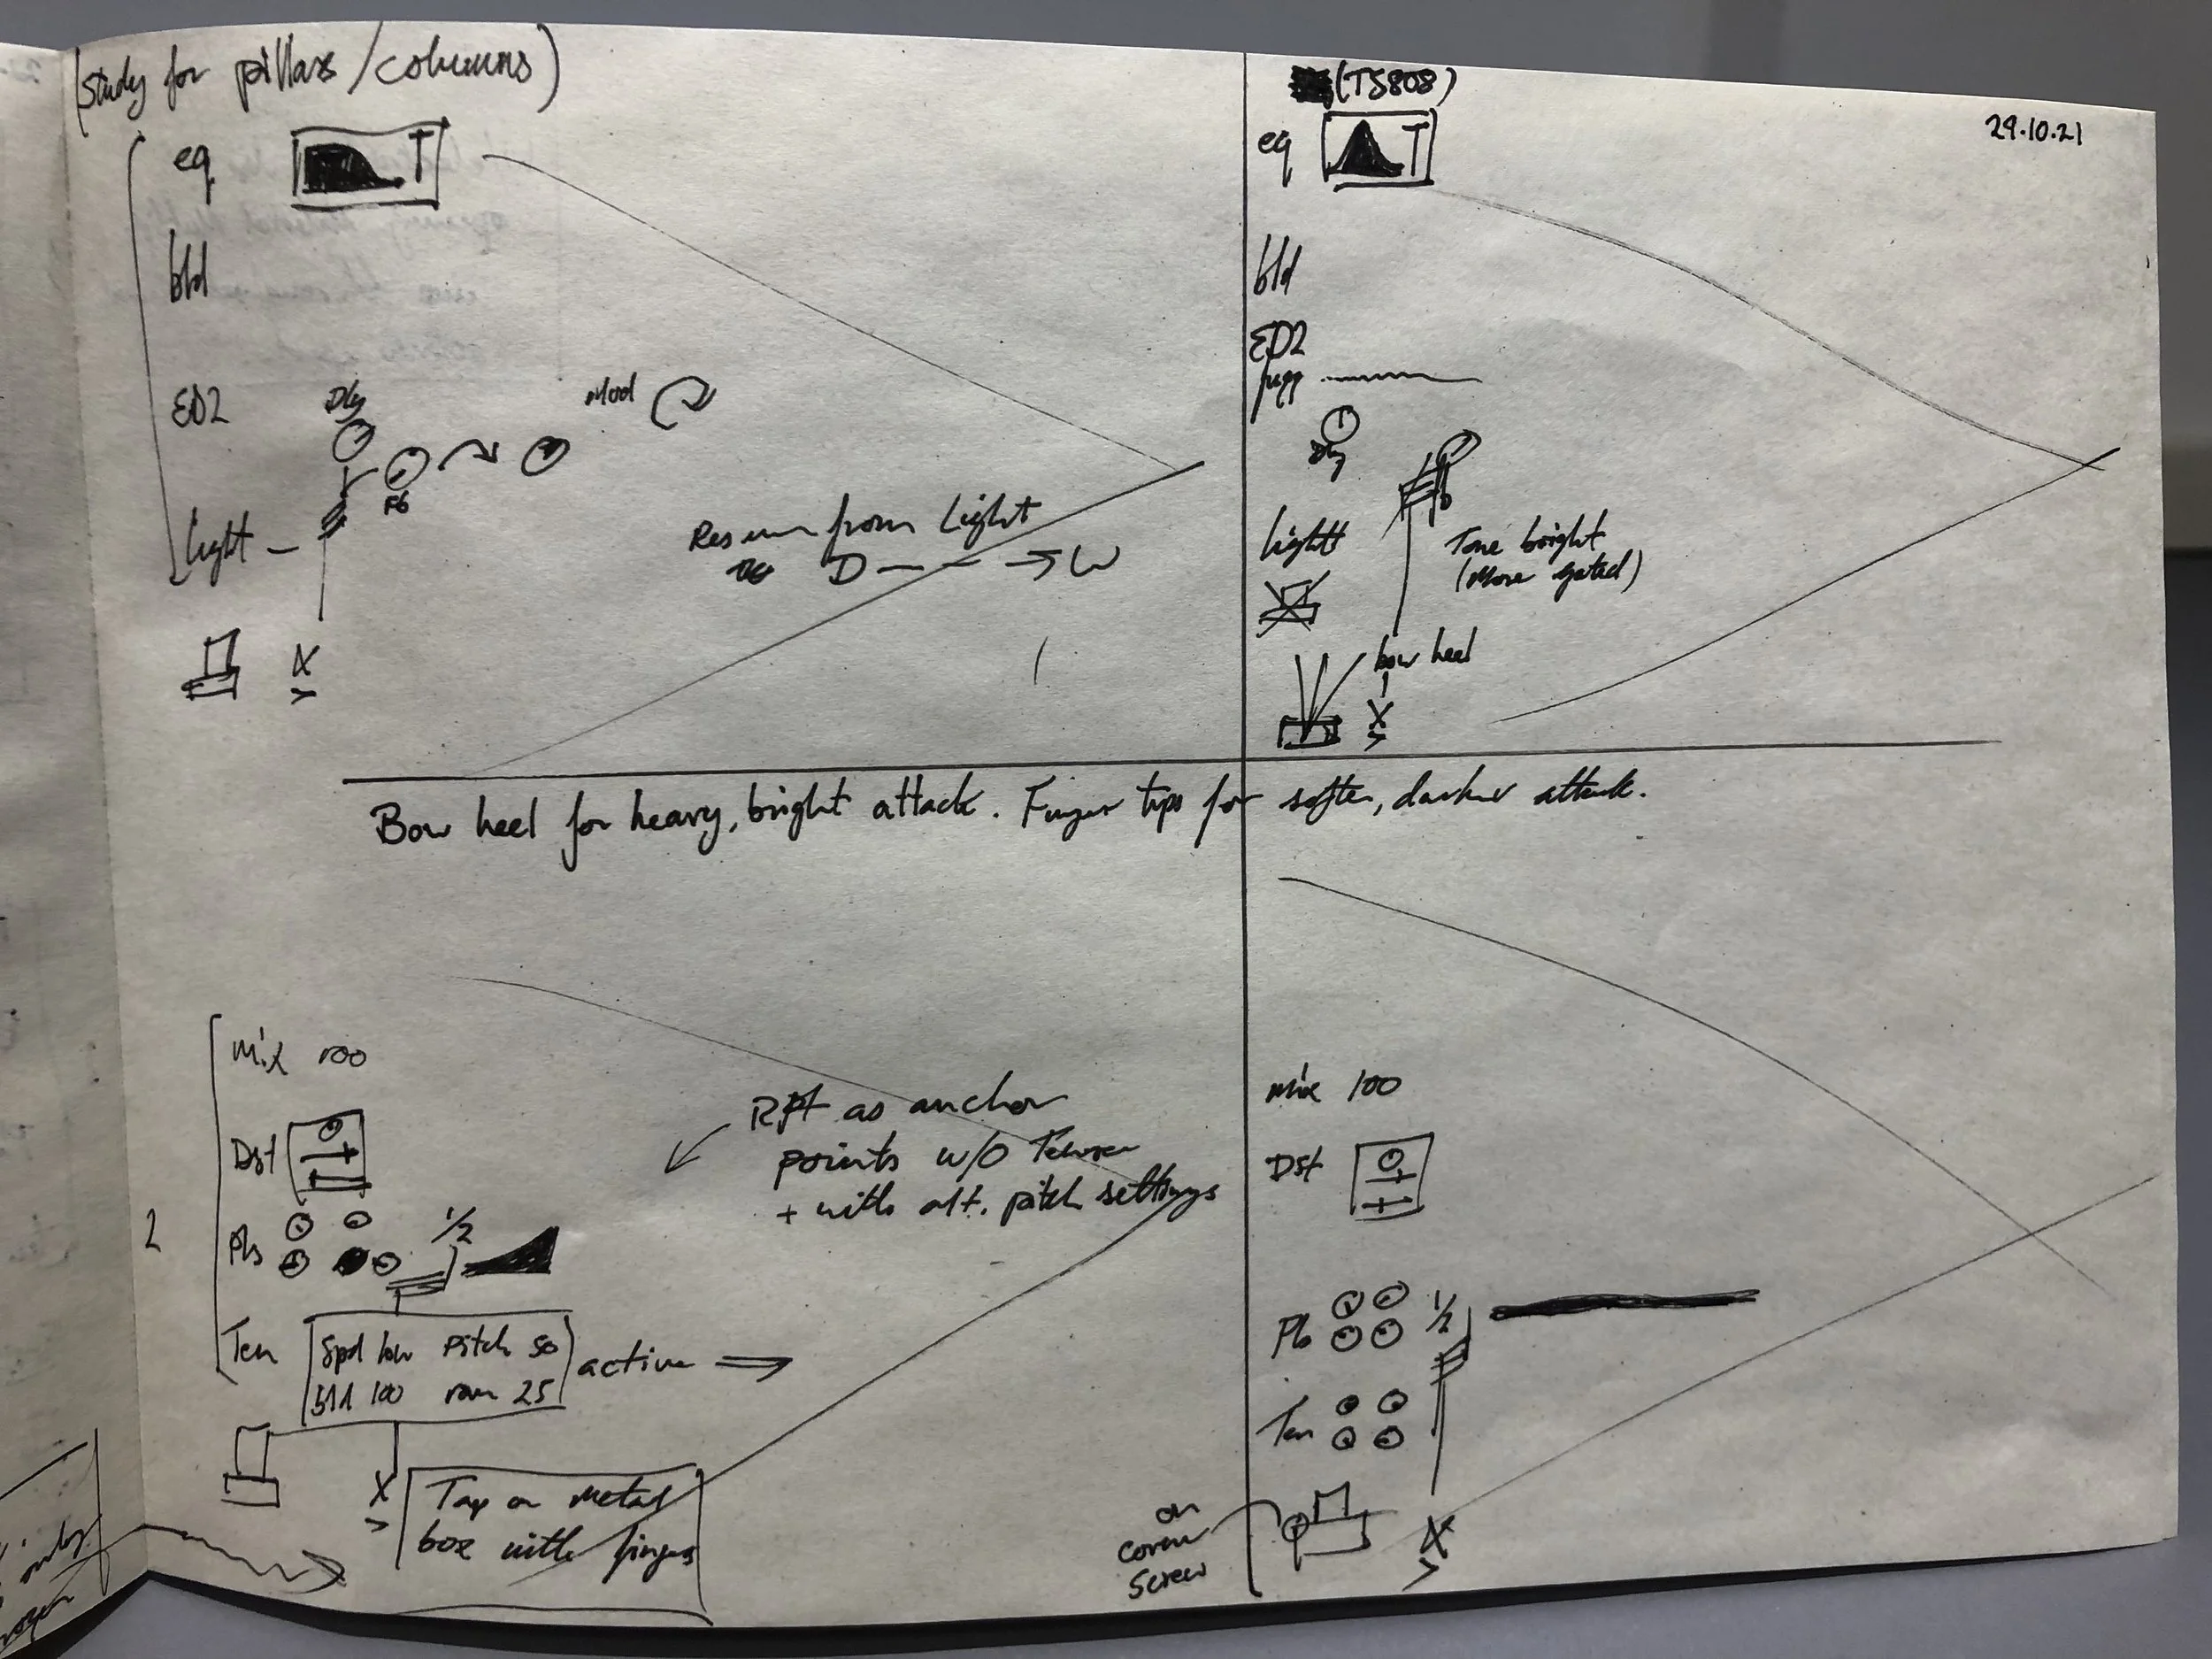 (Study for pillars/columns)
eq T
bld
ED2 Dly Mod
Fb
Light
from Light
D → W
(TS808)
29.10.21
eq T
bld
ED2
Dly
Light
Tone bright
(More gated)
bow heel
X
>
X
>
Bow heel for heavy, bright attack. Finger tips for softer, darker attack.
Mix 100
Dst
2
1/2
Ten Spd low Pitch 50
ran 25
active
RPT as anchor
points w/o Tension
+ with alt. pitch settings
X
>
Tap on metal
box with fingers
Mix 100
Dst
1/2
Ten
on
corner
screw
X
>
only